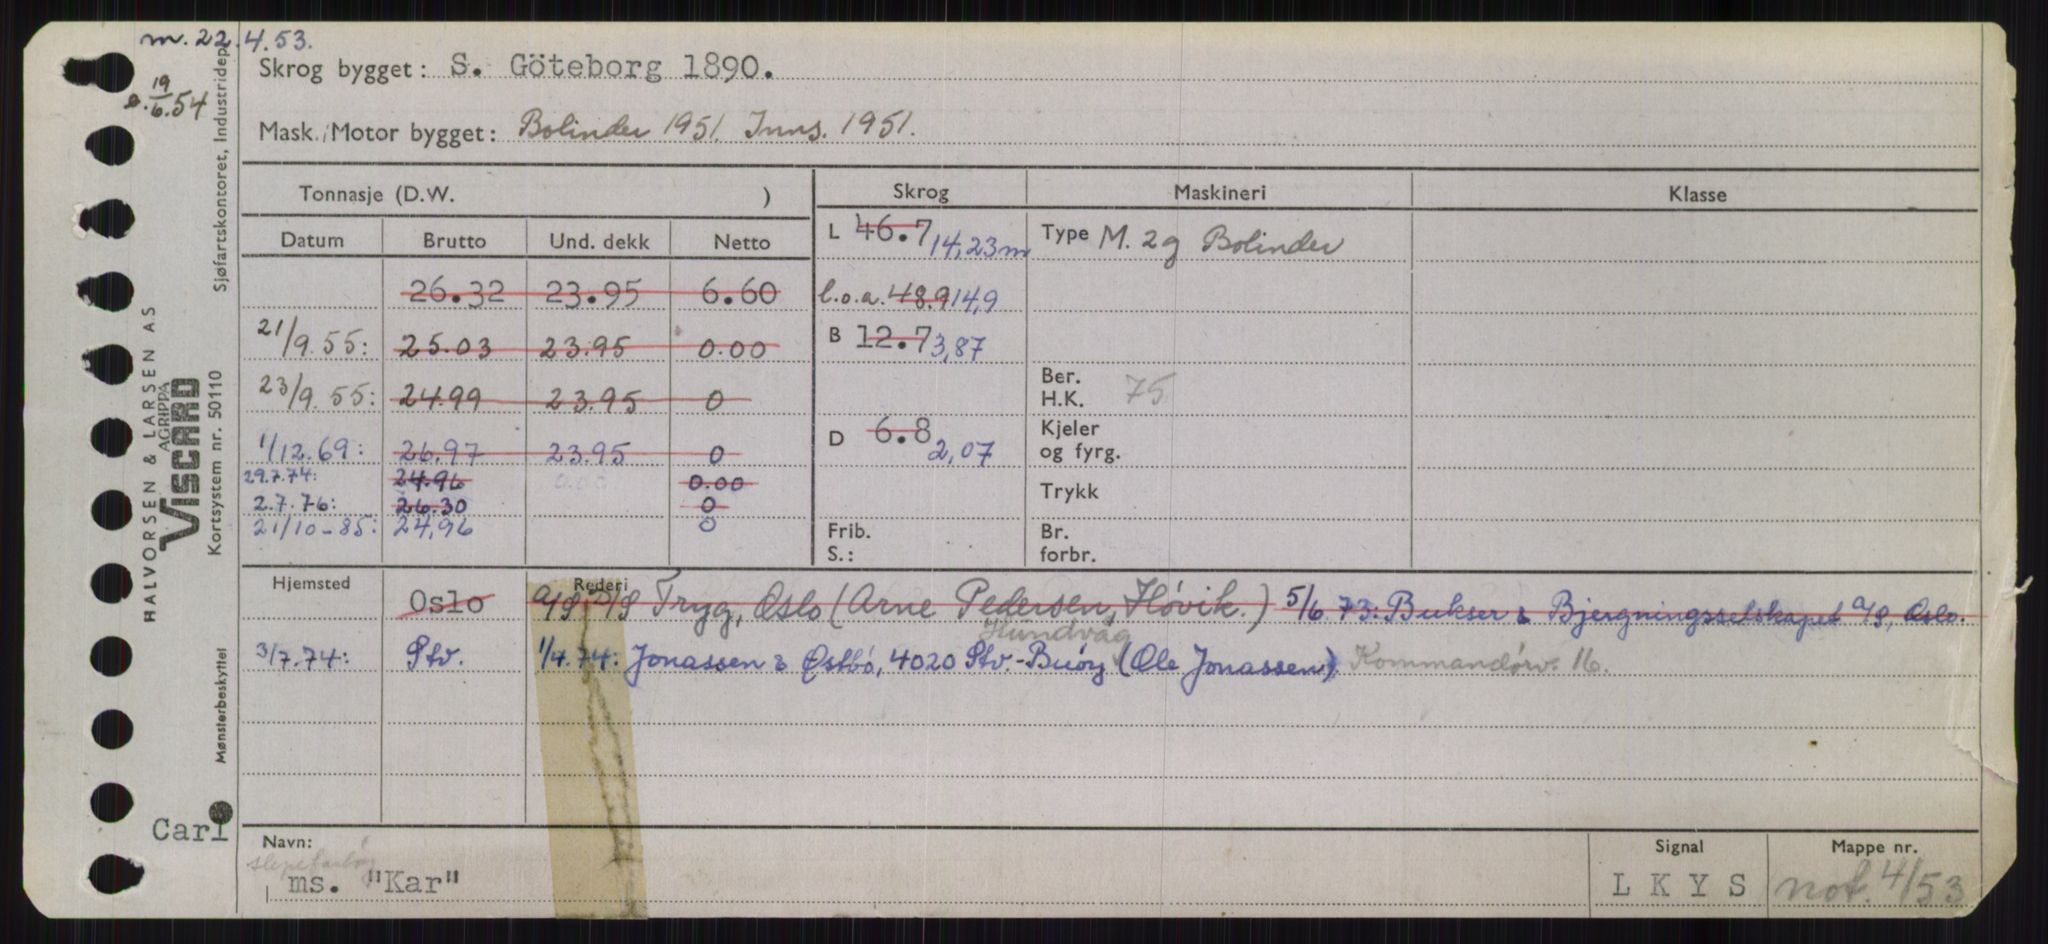 m. 22.4.53.
Skrog bygget: S. Göteborg 1890.
19/6.54
Mask./Motor bygget: Bolinder 1951. Inns. 1951.
Tonnasje (D.W. ) Skrog Maskineri Klasse
Datum Brutto Und. dekk Netto L 46.7 14,23m Type M. 2g Bolinder
26.32 23.95 6.60 l.o.a. 48.9 14,9
21/9.55: 25.03 23.95 0.00 B 12.7 3,87
23/9.55: 24.99 23.95 0 Ber. H.K. 75
1/12.69: 26.97 23.95 0 D 6.8 2,07 Kjeler og fyrg.
29.7.74: 24.96 0.00 0.00 Trykk
2.7.76: 26.30 0
21/10-85: 24,96 0 Frib. S.: Br. forbr.
Hjemsted Rederi
Oslo A/S D/S Tryg, Oslo (Arne Pedersen, Høvik.) 5/6 73: Bukser & Bjergningsselskapet A/S, Oslo.
Hundvåg
3/7.74: Stv. 1/4.74: Jonassen & Østbø, 4020 Stv.-Buøy (Ole Jonassen) Kommandørv. 16.
Carl
Navn: Signal Mappe nr.
slepefartøy
ms. "Kar" L K Y S not. 4/53
HALVORSEN & LARSEN AS
AGRIPPA
VISCARD
Sjøfartskontoret, Industridep.
Kortsystem nr. 50110
Mønsterbeskyttet